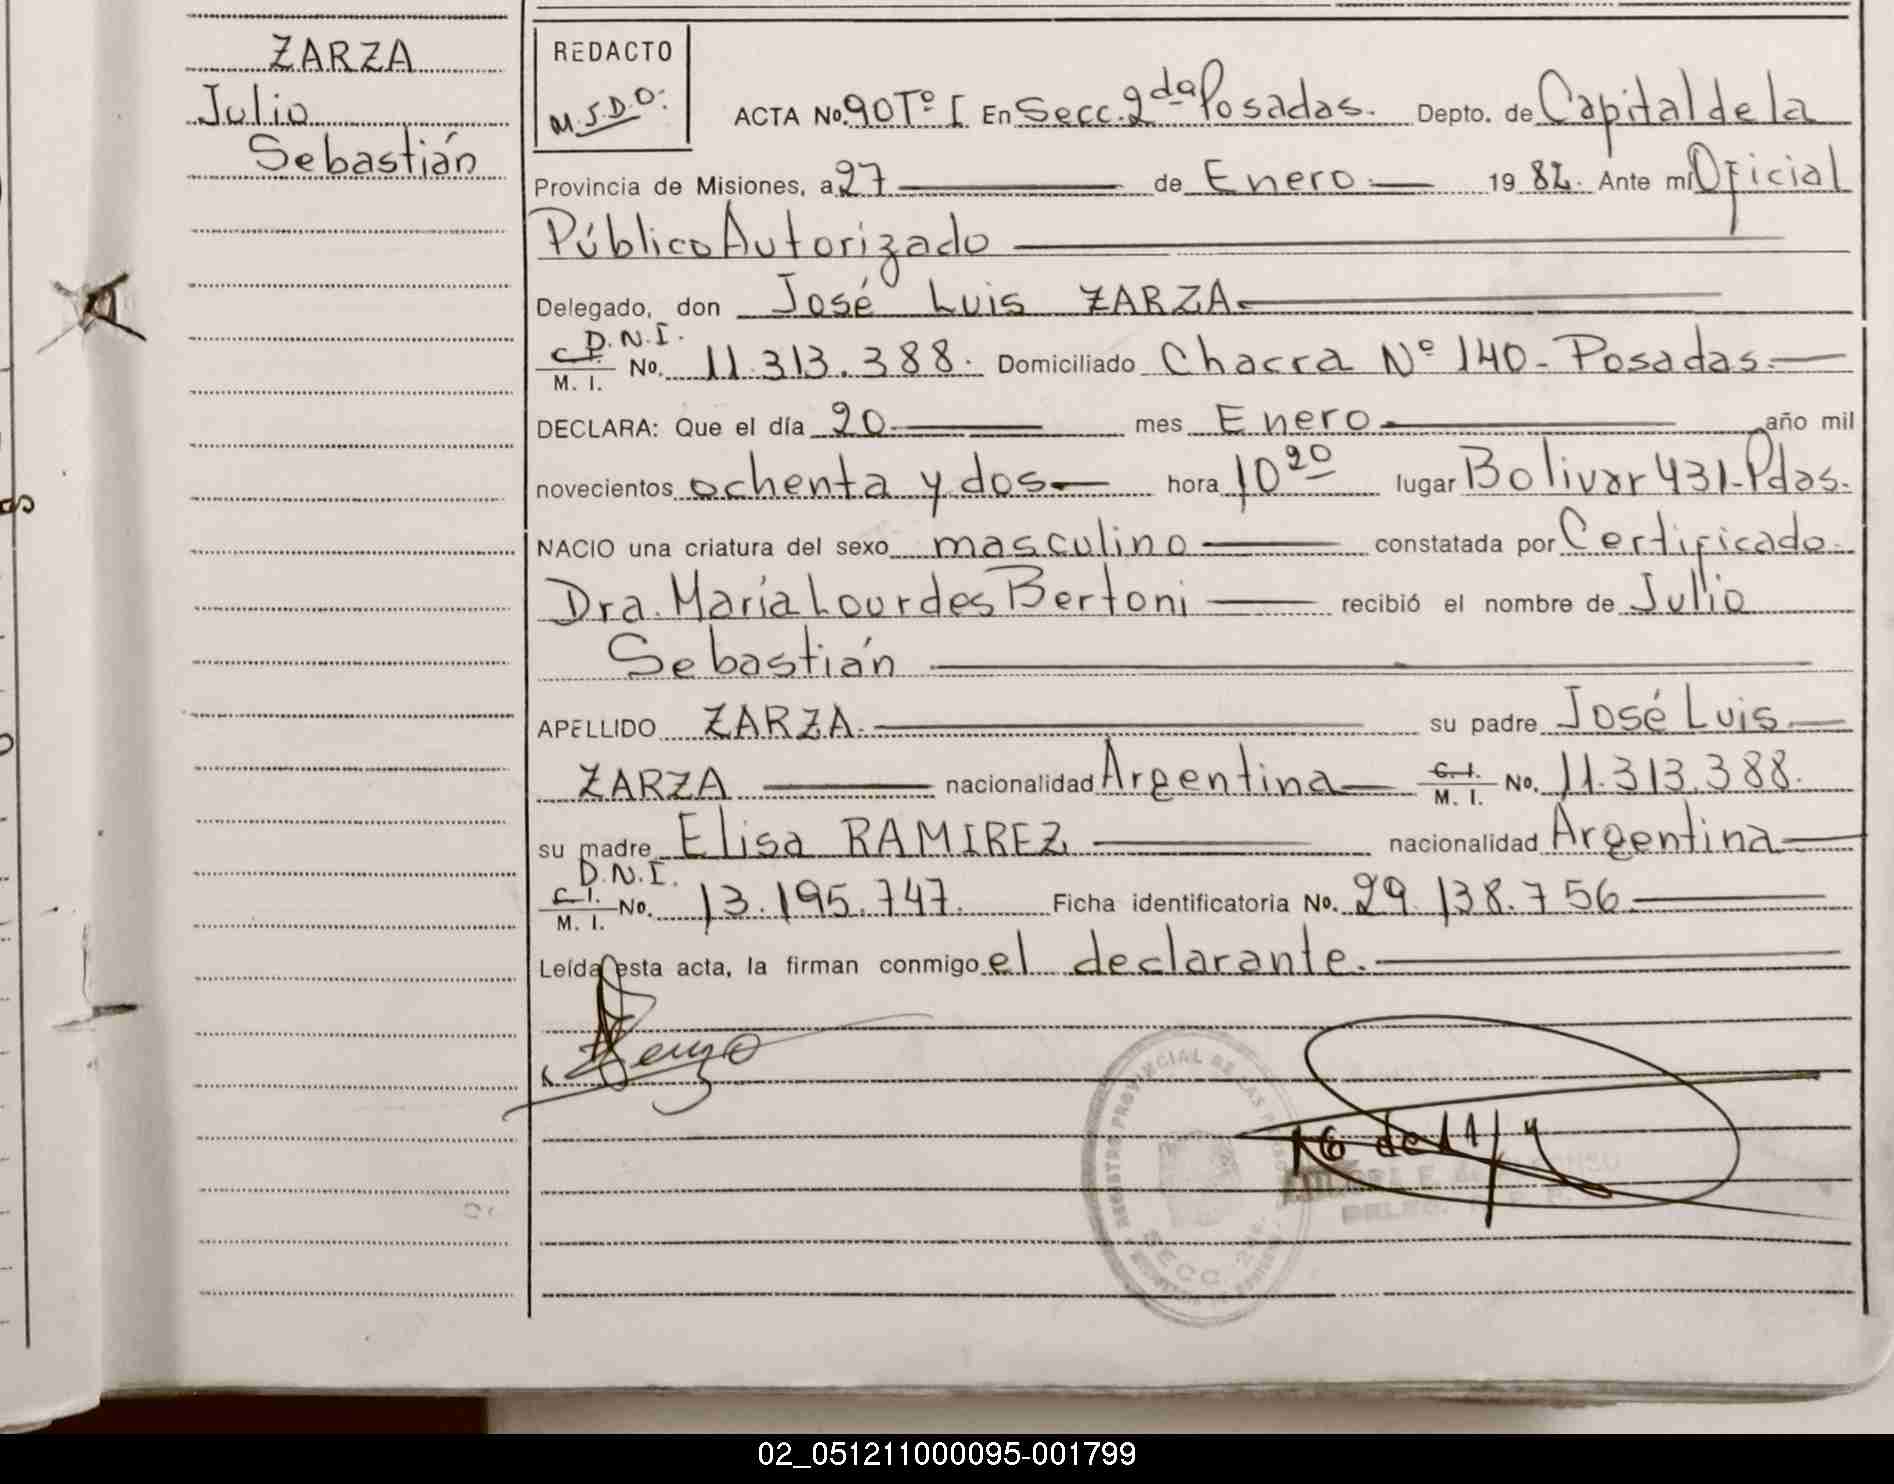 ZARZA
Julio
Sebastián
REDACTO
M.S.D.O:
ACTA No. 90 Tº I En Secc. 2da Posadas. Depto. de Capital de la
Provincia de Misiones, a 27 de Enero 1982. Ante mi Oficial
Público Autorizado
Delegado, don José Luis ZARZA
D.N.I.
C.I. M. I. No. 11.313.388. Domiciliado Chacra Nº 140 - Posadas.
DECLARA: Que el día 20 mes Enero año mil
novecientos ochenta y dos hora 10 20 lugar Bolivar 431 - Pdas.
NACIO una criatura del sexo masculino constatada por Certificado
Dra. María Lourdes Bertoni recibió el nombre de Julio
Sebastián
APELLIDO ZARZA. su padre José Luis
ZARZA nacionalidad Argentina C. I. M. I. No. 11.313.388.
su madre Elisa RAMIREZ nacionalidad Argentina
D.N.I.
C. I. M. I. No. 13.195.747. Ficha identificatoria No. 29.138.756
Leída esta acta, la firman conmigo el declarante.
REGISTRO PROVINCIAL DE LAS
SECC. 2da.
02_051211000095-001799